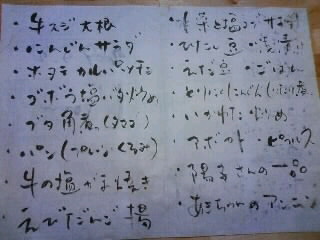 ・牛スジ大根
・にんじんサラダ
・ホタテカルパッチョ
・ゴボウ塩バタ炒め
・ブタ角煮(タマゴ)
・パン(プレーン、くるみ)
・牛の塩がま焼き
・えびだんご揚
菜と塩 サラダ
・ひたし豆
・えだ豆 ごはん
・とり にんじん
・いか 炒め
・アボカド・ピクルス
・陽子さんの一品
・あきちゃんのアンニン